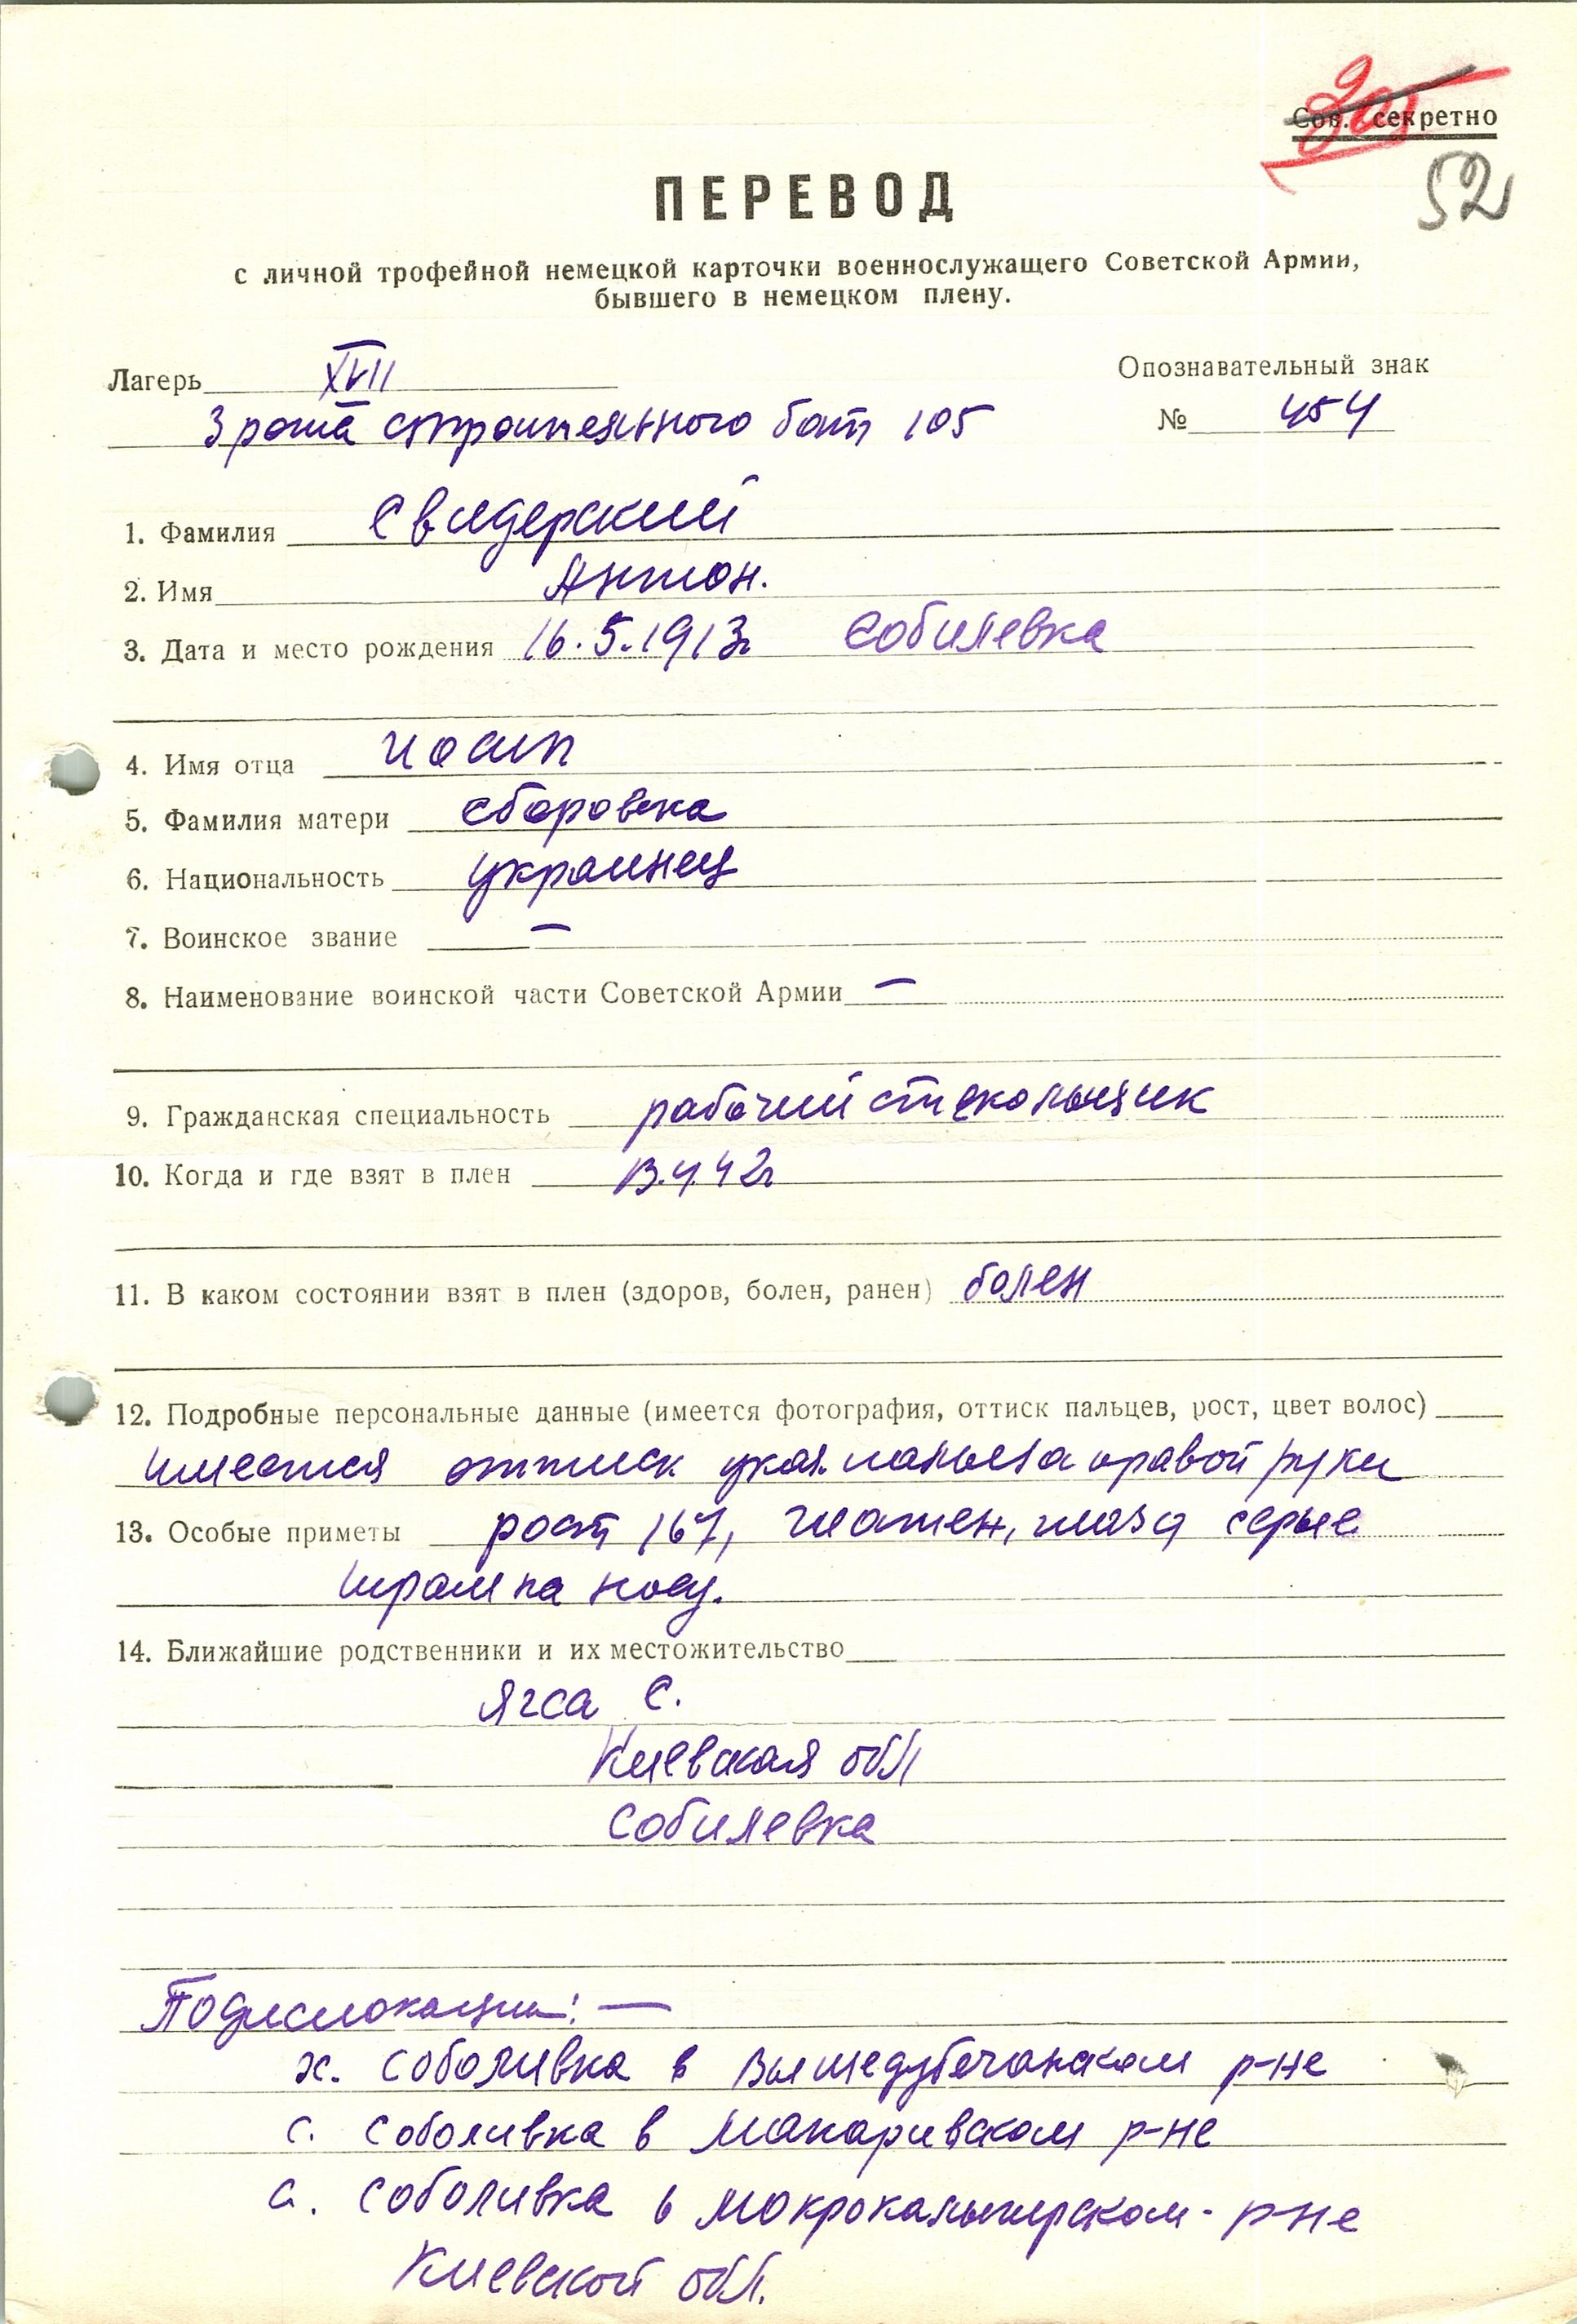 Сов. секретно
52
ПЕРЕВОД
с личной трофейной немецкой карточки военнослужащего Советской Армии,
бывшего в немецком плену.
Лагерь XVII
Опознавательный знак
3 рота строительного бат 105
№ 454
1. Фамилия Свидерский
2. Имя Антон.
3. Дата и место рождения 16.5.1913г Собилевка
4. Имя отца Иосип
5. Фамилия матери Сборовска
6. Национальность украинец
7. Воинское звание —
8. Наименование воинской части Советской Армии —
9. Гражданская специальность рабочий стекольщик
10. Когда и где взят в плен 13.4.42г
11. В каком состоянии взят в плен (здоров, болен, ранен) болен
12. Подробные персональные данные (имеется фотография, оттиск пальцев, рост, цвет волос)
имеется оттиск указ. пальца правой руки
13. Особые приметы рост 167, шатен, глаза серые
шрам на носу.
14. Ближайшие родственники и их местожительство
Ягса С.
Киевская обл
Собилевка
По дислокации: —
х. Соболивка в Вышедубечанском р-не
с. Соболивка в Макаривском р-не
с. Соболивка в Мокрокалыгирском - р-не
Киевской обл.